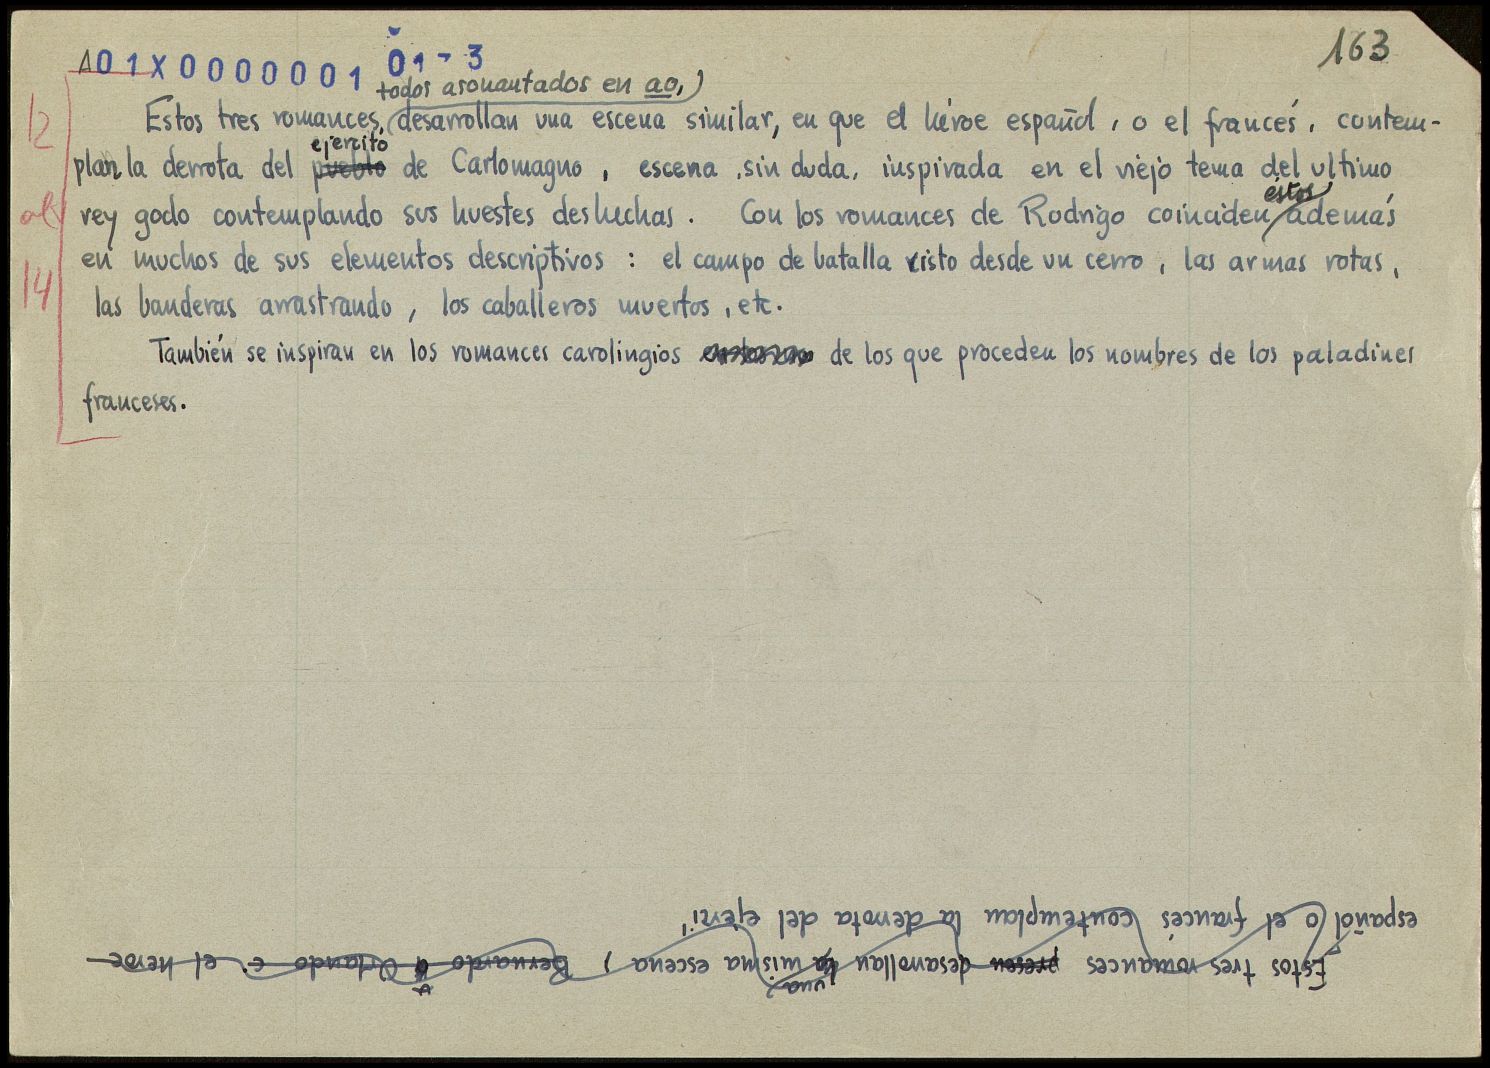 A01X0000000101-3
163
todos asonantados en ao,
Estos tres romances, desarrollan una escena similar, en que el héroe español, o el francés, contem-
ejercito
plan la derrota del pueblo de Carlomagno, escena, sin duda, inspirada en el viejo tema del ultimo
éstos
rey godo contemplando sus huestes deshechas. Con los romances de Rodrigo coinciden además
en muchos de sus elementos descriptivos: el campo de batalla visto desde un cerro, las armas rotas,
las banderas arrastrando, los caballeros muertos, etc.
También se inspiran en los romances carolingios de los que proceden los nombres de los paladines
franceses.
12
14
Estos tres romances presen desarrollan la misma escena, Bernardo o Orlando é, el heroe
una
español o el francés contemplan la derrota del ejérci